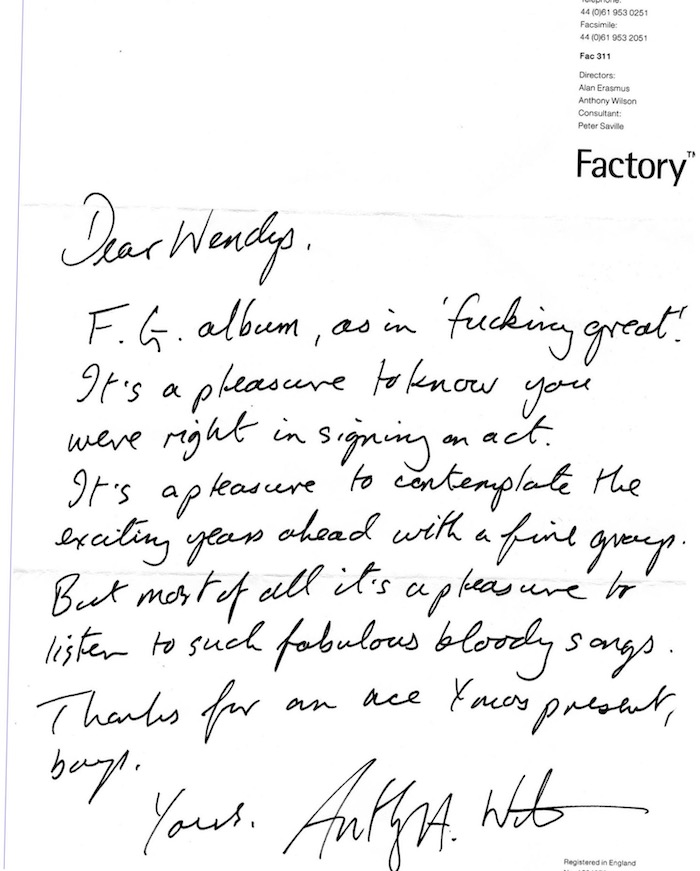 Telephone:
44 (0)61 953 0251
Facsimile:
44 (0)61 953 2051
Fac 311
Directors:
Alan Erasmus
Anthony Wilson
Consultant:
Peter Saville
Factory™
Dear Wendys.
F. G. album, as in 'fucking great'.
It's a pleasure to know you
were right in signing an act.
It's a pleasure to contemplate the
exciting years ahead with a fine group.
But most of all it's a pleasure to
listen to such fabulous bloody songs.
Thanks for an ace Xmas present,
boys.
Yours. Anthony H. Wilson
Registered in England